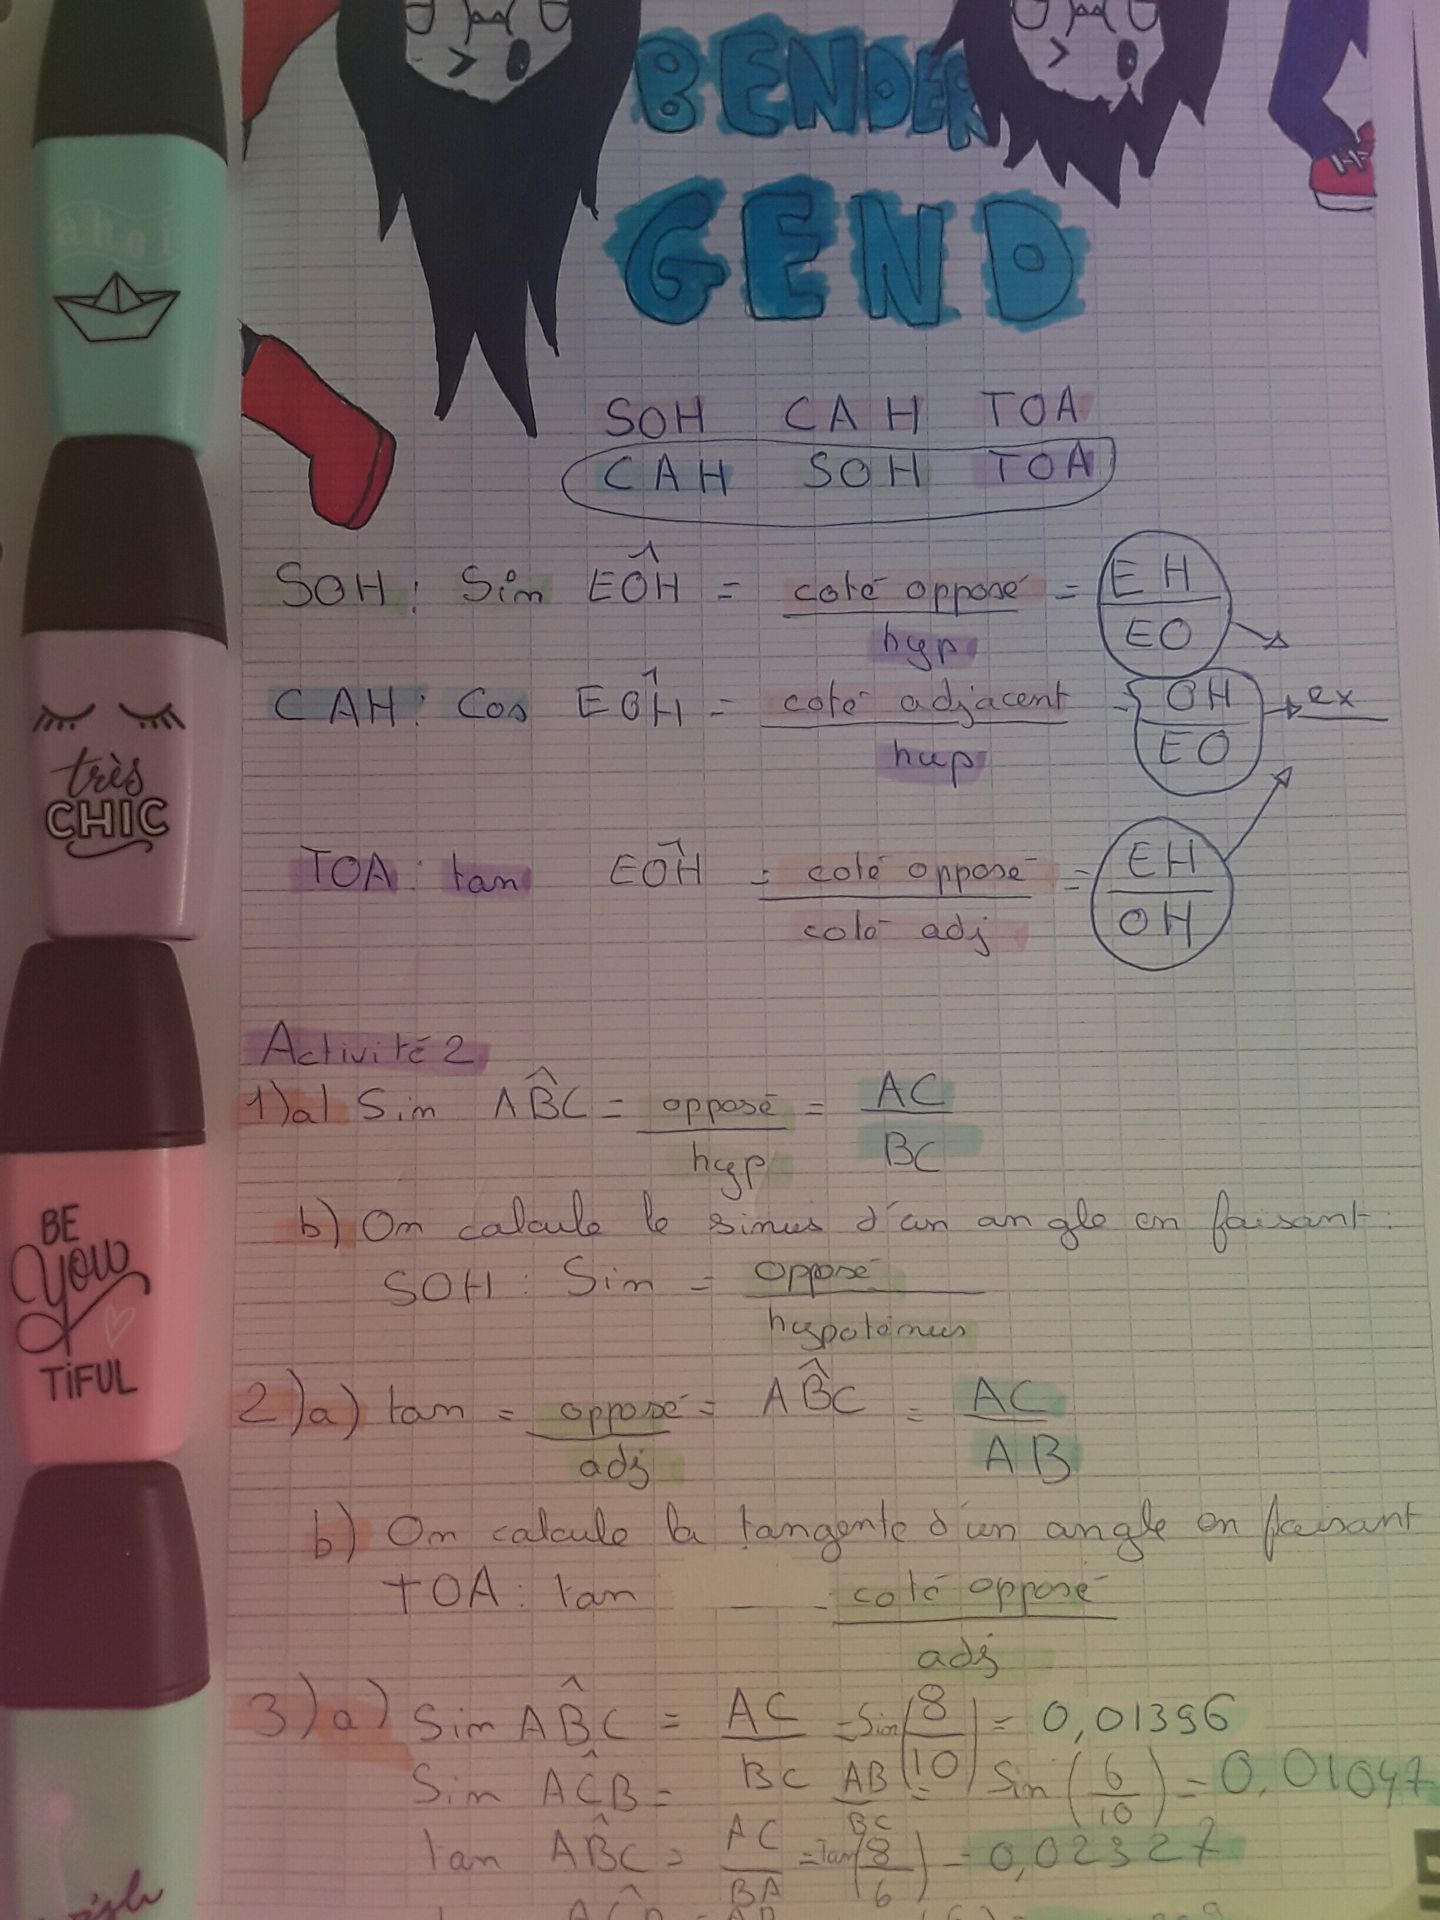 BENDER
GEND
ahoi
SOH CAH TOA
CAH SOH TOA
SOH : Sin EÔH = coté opposé / hyp = EH / EO
CAH : Cos EÔH = coté adjacent / hyp = OH / EO → ex
très
CHIC
TOA : tan EÔH = coté opposé / coté adj = EH / OH
Activité 2
1)a) Sin AB̂C = opposé / hyp = AC / BC
BE
You
TiFUL
b) On calcule le sinus d'un angle en faisant :
SOH : Sin = opposé / hypoténus
2)a) tan = opposé / adj = AB̂C = AC / AB
b) On calcule la tangente d'un angle en faisant
TOA : tan coté opposé / adj
3)a) Sin AB̂C = AC / BC = Sin (8 / 10) = 0,01396
Sin AĈB = AB / BC = Sin (6 / 10) = 0,01047
tan AB̂C = AC / BA = Tan (8 / 6) = 0,02327